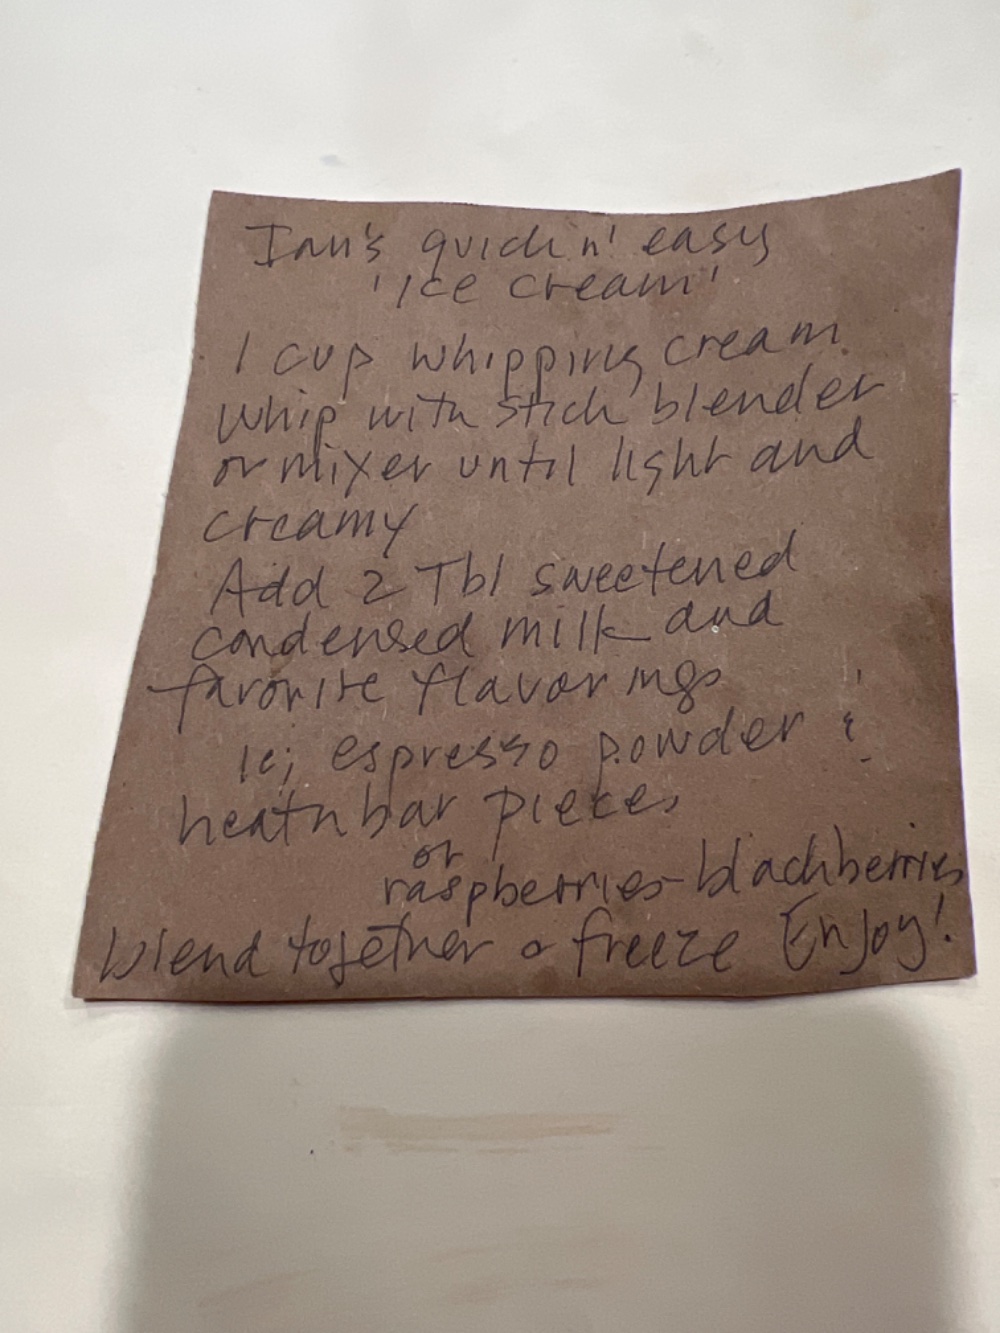 Ian's quick n' easy
'Ice cream'
1 cup whipping cream
whip with stick blender
or mixer until light and
creamy
Add 2 Tbl sweetened
condensed milk and
favorite flavorings
ie; espresso powder &
heath bar pieces
or
raspberries-blackberries
blend together & freeze Enjoy!